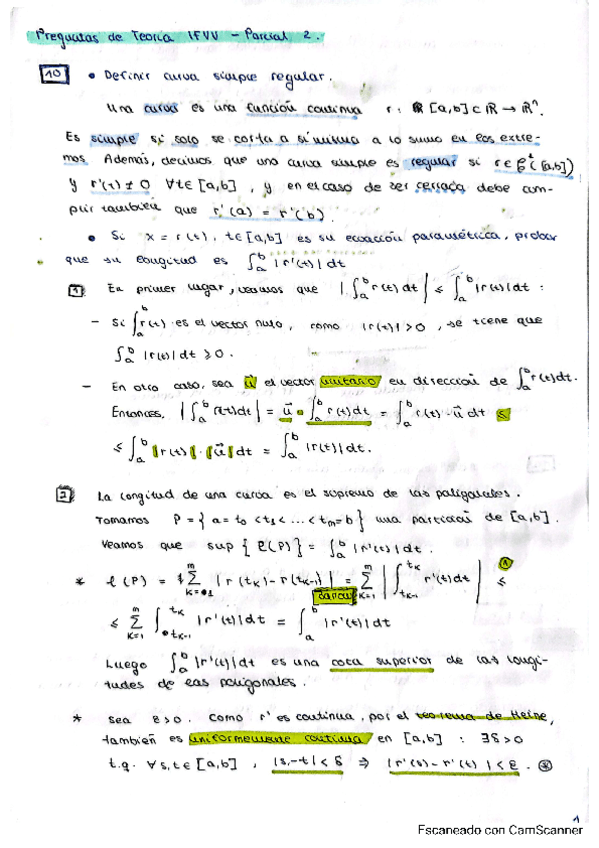 Preguntas de Teoría IFVV - Parcial 2.
10 • Definir curva simple regular.
Una curva es una función continua r: [a,b] ⊂ ℝ → ℝⁿ.
Es simple si solo se corta a sí misma a lo sumo en los extre-
mos. Además, decimos que una curva simple es regular si r ∈ C¹([a,b])
y r'(t) ≠ 0 ∀t ∈ [a,b], y en el caso de ser cerrada debe cum-
plir también que r'(a) = r'(b).
• Si x = r(t), t ∈ [a,b] es su ecuación paramétrica, probar
que su longitud es ∫ₐᵇ |r'(t)| dt
1 En primer lugar, veamos que |∫ₐᵇ r(t) dt| ≤ ∫ₐᵇ |r(t)| dt :
- Si ∫ₐᵇ r(t) es el vector nulo, como |r(t)| > 0, se tiene que
∫ₐᵇ |r(t)| dt ≥ 0.
- En otro caso, sea u⃗ el vector unitario en dirección de ∫ₐᵇ r(t) dt.
Entonces, |∫ₐᵇ r(t) dt| = u⃗ • ∫ₐᵇ r(t) dt = ∫ₐᵇ r(t) · u⃗ dt ≤
≤ ∫ₐᵇ |r(t)| · |u⃗| dt = ∫ₐᵇ |r(t)| dt.
2 La longitud de una curva es el supremo de las poligonales.
Tomamos P = { a = t₀ < t₁ < ... < tₘ = b } una partición de [a,b].
Veamos que sup { ℓ(P) } = ∫ₐᵇ |r'(t)| dt.
* ℓ(P) = Σ |r(t_K) - r(t_K-1)| = Σ |∫ r'(t) dt| ≤ 1
Barrow
≤ Σ ∫ |r'(t)| dt = ∫ₐᵇ |r'(t)| dt
Luego ∫ₐᵇ |r'(t)| dt es una cota superior de las longi-
tudes de las poligonales.
* Sea ε > 0. Como r' es continua, por el teorema de Heine,
también es uniformemente continua en [a,b] : ∃ δ > 0
t.q. ∀ s,t ∈ [a,b], |s-t| < δ ⇒ |r'(s) - r'(t)| < ε. *
1
Escaneado con CamScanner